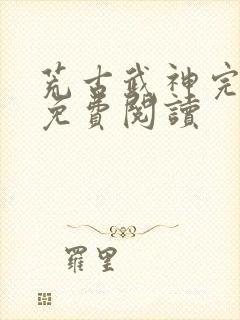 荒古武神完
免費閱讀
羅里